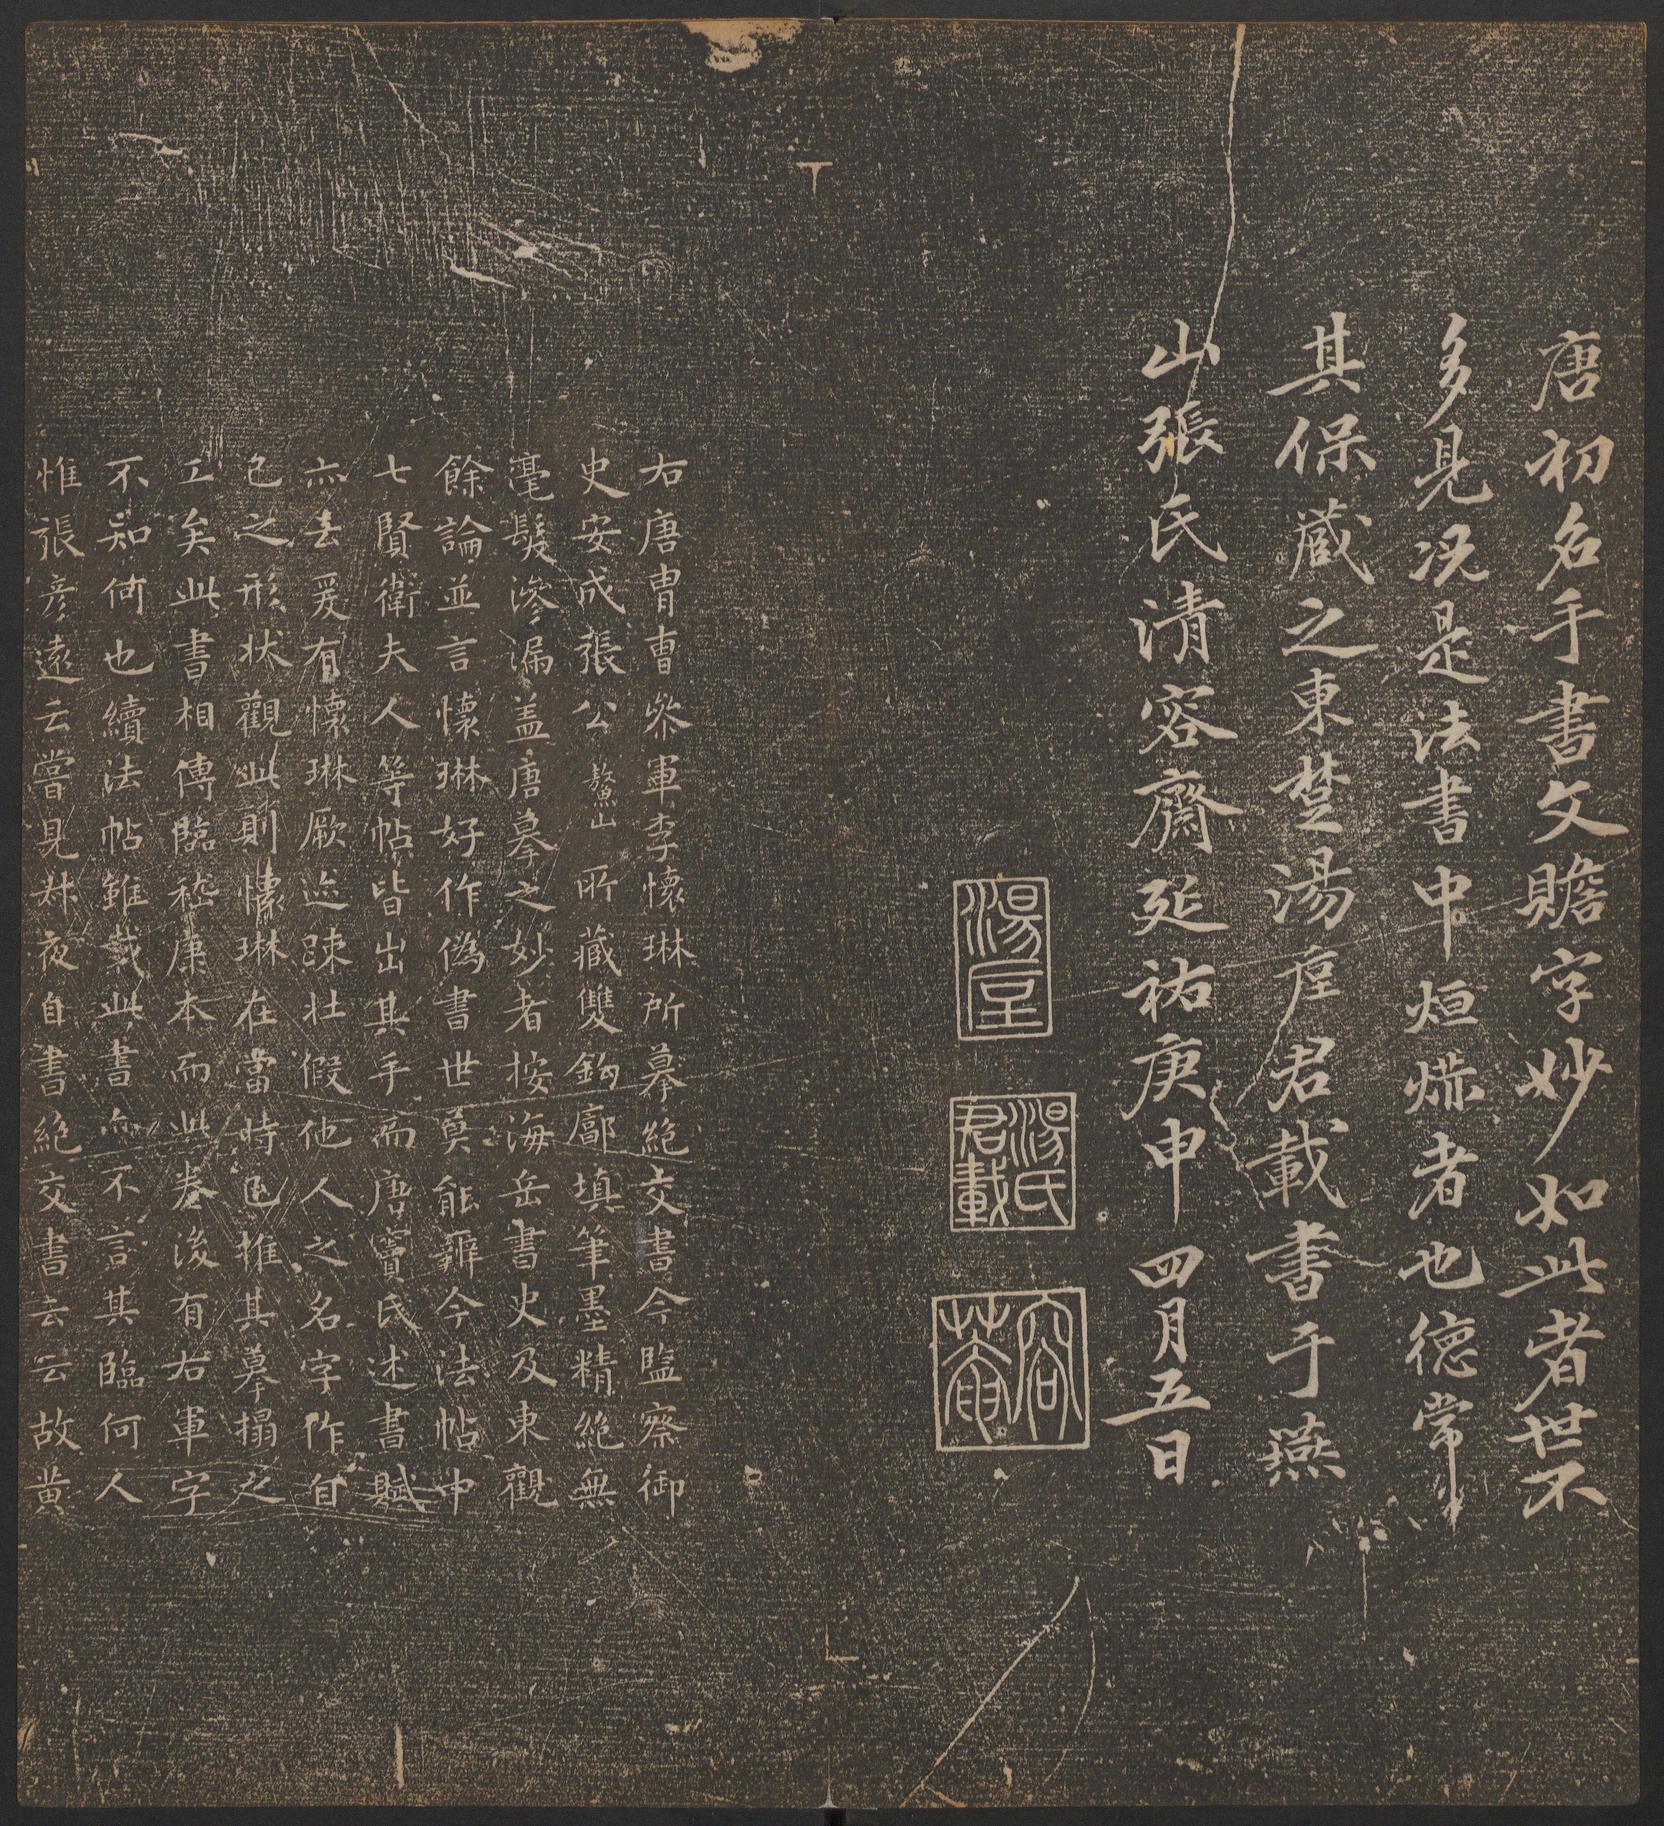 唐初名手書文贍字妙如此者世不
多見況是法書中烜爀者也德常
其保藏之東楚湯垕君載書于燕
山張氏清容齋延祐庚申四月五日
湯垕
湯氏君載
容菴
右唐胄曹叅軍李懷琳所摹絶交書今監察御
史安成張公鼇山所藏雙鈎廓填筆墨精絶無
毫髮滲漏盖唐摹之妙者按海岳書史及東觀
餘論並言懷琳好作偽書世莫能辨今法帖中
七賢衛夫人等帖皆出其手而唐竇氏述書賦
亦云爰有懷琳厥迹疎壯假他人之名字作自
己之形状觀此則懷琳在當時已推其摹搨之
工矣此書相傳臨嵇康本而此卷後有右軍字
不知何也續法帖雖載此書亦不言其臨何人
惟張彦遠云嘗見叔夜自書絶交書云云故黄